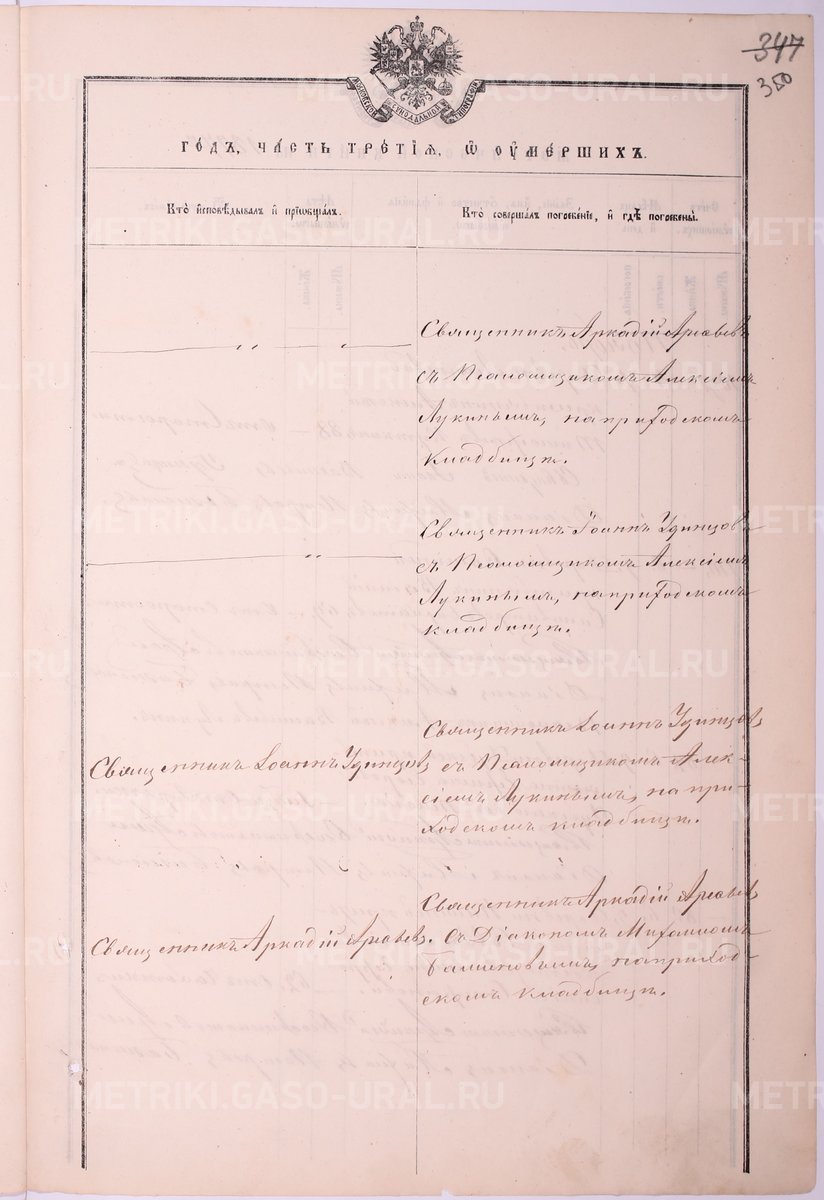 347
350
МОСКОВСКОЙ СѴНОДАЛЬНОЙ ТИПОГРАФІИ
ГОДЪ, ЧАСТЬ ТРЕТІѦ, Ѡ ОУМЕРШИХЪ.
Кто исповѣдывалъ и пріобщалъ.
Кто совершалъ погребеніе, и гдѣ погребены.
Священникъ Аркадій
съ Псаломщикомъ Алексіемъ
Лукинымъ, на приходскомъ
кладбищѣ.
Священникъ Іоаннъ Удинцовъ
съ Псаломщикомъ Алексіемъ
Лукинымъ, на приходскомъ
кладбищѣ.
Священникъ Іоаннъ Удинцовъ
Священникъ Іоаннъ Удинцовъ
съ Псаломщикомъ Алек-
сіемъ Лукинымъ, на при-
ходскомъ кладбищѣ.
Священникъ Аркадій
Священникъ Аркадій
съ Діакономъ Михаиломъ
на приход-
скомъ кладбищѣ.
METRIKI.GASO-URAL.RU